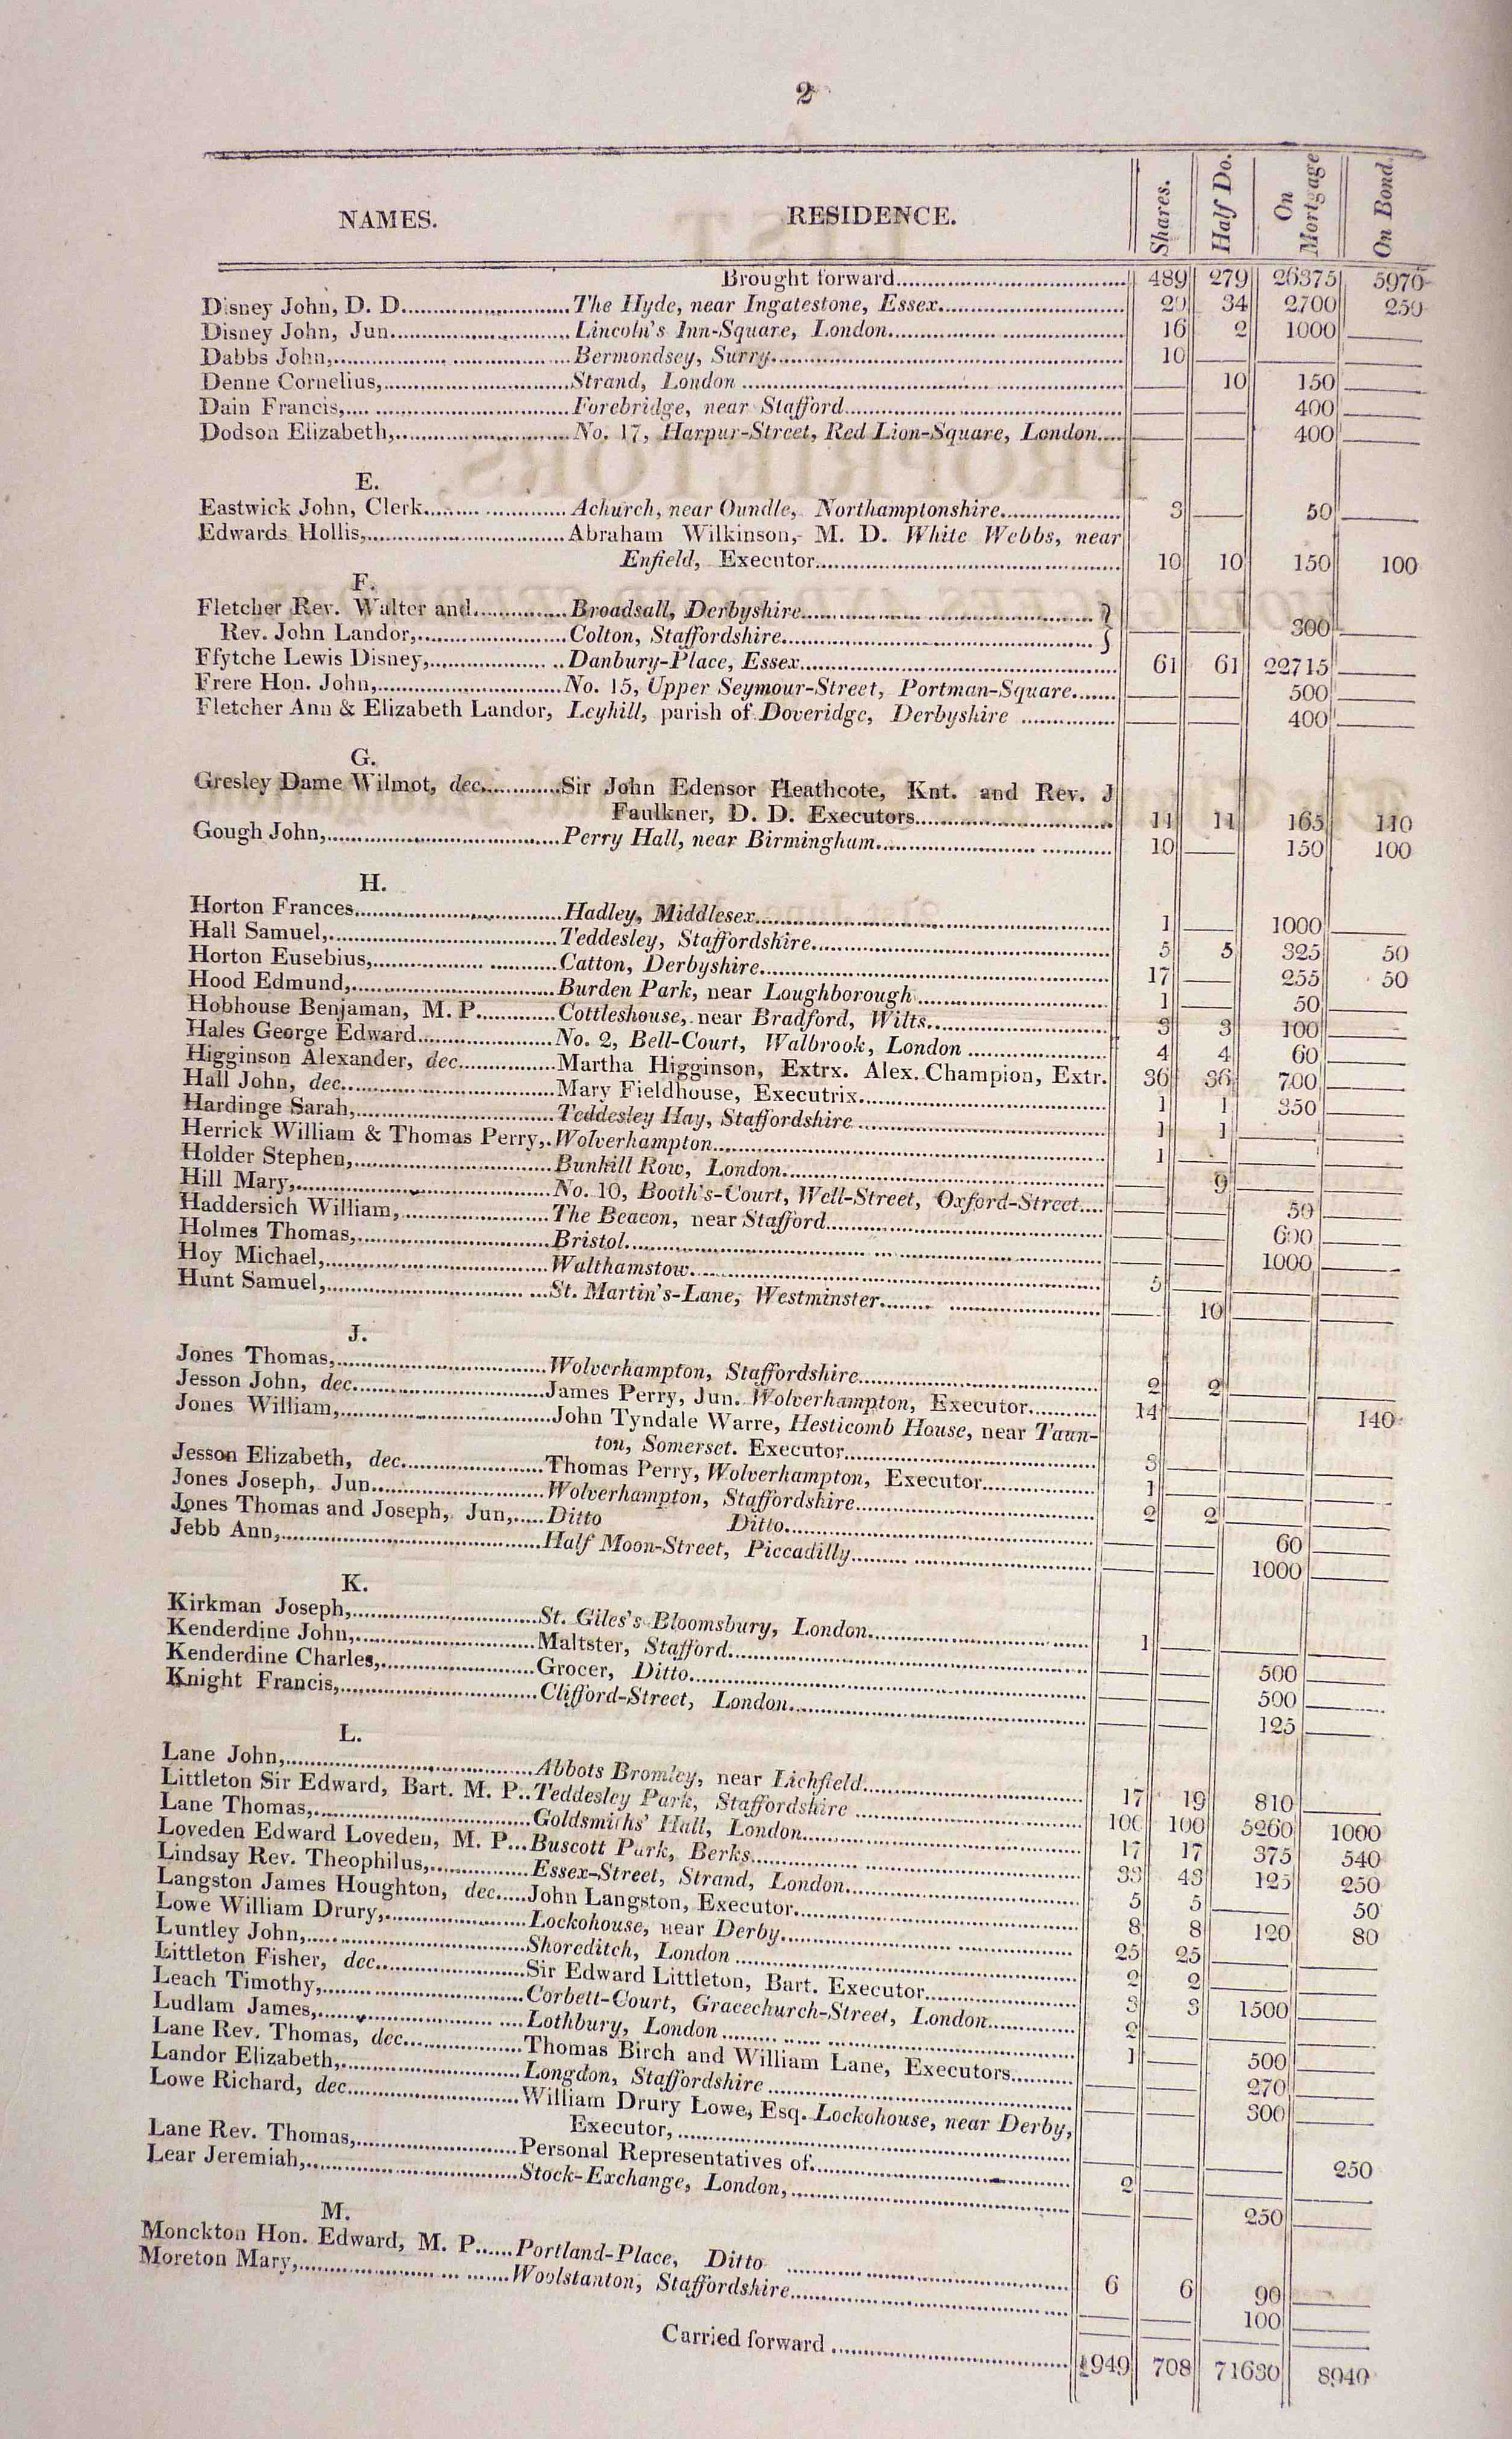 2
NAMES. RESIDENCE. Shares. Half Do. On Mortgage On Bond.
Brought forward 489 279 26375 5970
Disney John, D. D. The Hyde, near Ingatestone, Essex 20 34 2700 250
Disney John, Jun. Lincoln's Inn-Square, London 16 2 1000
Dabbs John, Bermondsey, Surry 10
Denne Cornelius, Strand, London 10 150
Dain Francis, Forebridge, near Stafford 400
Dodson Elizabeth, No. 17, Harpur-Street, Red Lion-Square, London 400
E.
Eastwick John, Clerk Achurch, near Oundle, Northamptonshire 3 50
Edwards Hollis, Abraham Wilkinson, M. D. White Webbs, near
Enfield, Executor 10 10 150 100
F.
Fletcher Rev. Walter and Broadsall, Derbyshire }
Rev. John Landor, Colton, Staffordshire } 300
Ffytche Lewis Disney, Danbury-Place, Essex 61 61 22715
Frere Hon. John, No. 15, Upper Seymour-Street, Portman-Square 500
Fletcher Ann & Elizabeth Landor, Leyhill, parish of Doveridge, Derbyshire 400
G.
Gresley Dame Wilmot, dec. Sir John Edensor Heathcote, Knt. and Rev. J
Faulkner, D. D. Executors 11 11 165 110
Gough John, Perry Hall, near Birmingham 10 150 100
H.
Horton Frances Hadley, Middlesex 1 1000
Hall Samuel, Teddesley, Staffordshire 5 5 325 50
Horton Eusebius, Catton, Derbyshire 17 255 50
Hood Edmund, Burden Park, near Loughborough 1 50
Hobhouse Benjaman, M. P. Cottleshouse, near Bradford, Wilts. 3 3 100
Hales George Edward No. 2, Bell-Court, Walbrook, London 4 4 60
Higginson Alexander, dec. Martha Higginson, Extrx. Alex. Champion, Extr. 36 36 700
Hall John, dec. Mary Fieldhouse, Executrix 1 1 350
Hardinge Sarah, Teddesley Hay, Staffordshire 1 1
Herrick William & Thomas Perry, Wolverhampton 1
Holder Stephen, Bunhill Row, London 9
Hill Mary, No. 10, Booth's-Court, Well-Street, Oxford-Street 50
Haddersich William, The Beacon, near Stafford 600
Holmes Thomas, Bristol 1000
Hoy Michael, Walthamstow 5
Hunt Samuel, St. Martin's-Lane, Westminster 10
J.
Jones Thomas, Wolverhampton, Staffordshire 2 2
Jesson John, dec. James Perry, Jun. Wolverhampton, Executor 14 140
Jones William, John Tyndale Warre, Hesticomb House, near Taun-
ton, Somerset. Executor 3
Jesson Elizabeth, dec. Thomas Perry, Wolverhampton, Executor 1
Jones Joseph, Jun. Wolverhampton, Staffordshire 2 2
Jones Thomas and Joseph, Jun, Ditto Ditto 60
Jebb Ann, Half Moon-Street, Piccadilly 1000
K.
Kirkman Joseph, St. Giles's Bloomsbury, London 1
Kenderdine John, Maltster, Stafford 500
Kenderdine Charles, Grocer, Ditto 500
Knight Francis, Clifford-Street, London 125
L.
Lane John, Abbots Bromley, near Lichfield 17 19 810
Littleton Sir Edward, Bart. M. P. Teddesley Park, Staffordshire 100 100 5260 1000
Lane Thomas, Goldsmiths' Hall, London 17 17 375 540
Loveden Edward Loveden, M. P. Buscott Park, Berks. 33 43 125 250
Lindsay Rev. Theophilus, Essex-Street, Strand, London 5 5 50
Langston James Houghton, dec. John Langston, Executor 8 8 120 80
Lowe William Drury, Lockohouse, near Derby 25 25
Luntley John, Shoreditch, London 2 2
Littleton Fisher, dec. Sir Edward Littleton, Bart. Executor 3 3 1500
Leach Timothy, Corbett-Court, Gracechurch-Street, London 2
Ludlam James, Lothbury, London 1 500
Lane Rev. Thomas, dec. Thomas Birch and William Lane, Executors 270
Landor Elizabeth, Longdon, Staffordshire 300
Lowe Richard, dec. William Drury Lowe, Esq. Lockohouse, near Derby,
Executor, 250
Lane Rev. Thomas, Personal Representatives of 2
Lear Jeremiah, Stock-Exchange, London, 250
M.
Monckton Hon. Edward, M. P. Portland-Place, Ditto 6 6 90
Moreton Mary, Woolstanton, Staffordshire 100
Carried forward 949 708 71630 8940